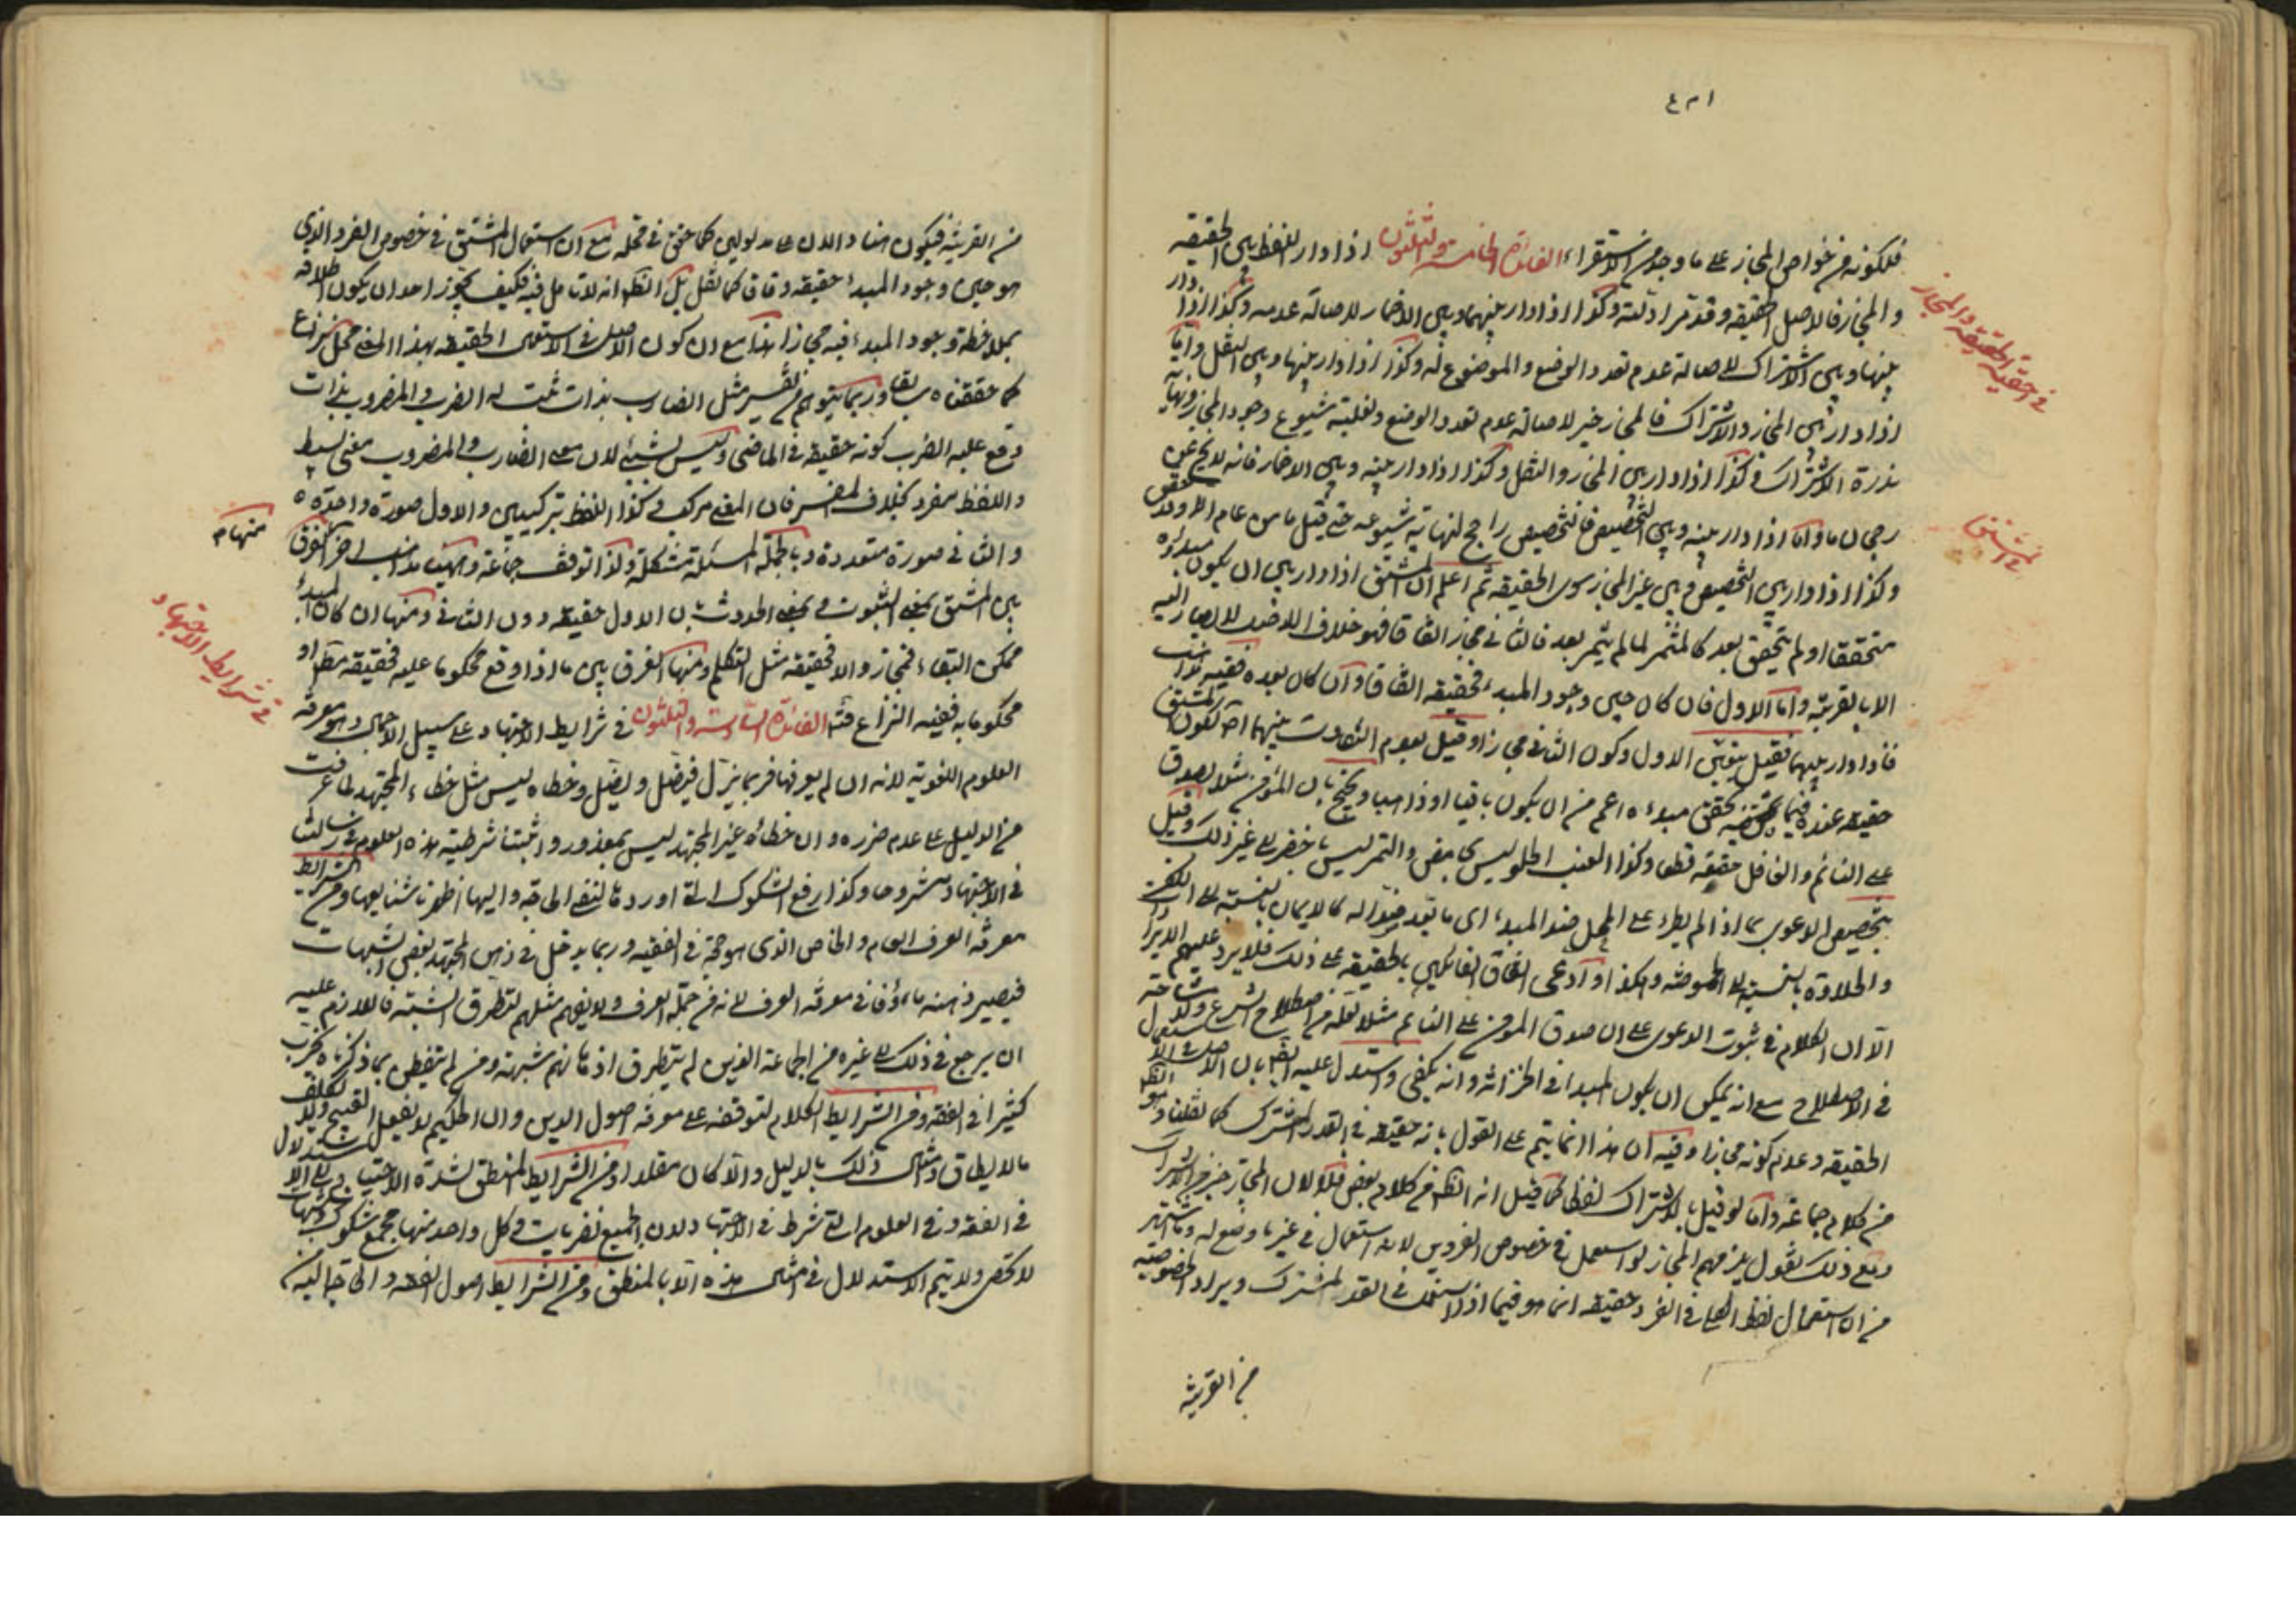 فلكونه من خواص المجاز على ما وجد من الاستقراء الفائدة الخامسة والثلثون اذا دار اللفظ بين الحقيقة
والمجاز فالاصل الحقيقة وقد مر ادلته وكذا اذا دار بينهما وبين الاضمار لاصالة عدمه وكذا اذا دار
بينها وبين الاشتراك لاصالة عدم تعدد الوضع والموضوع له وكذا اذا دار بينها وبين النقل واما
اذا دار بين المجاز والاشتراك فالمجاز خير لاصالة عدم تعدد الوضع ولغلبة شيوع وجود المجاز ونهاية
ندرة الاشتراك وكذا اذا دار بين المجاز والنقل وكذا اذا دار بينه وبين الاضمار فانه لا يخ عن
رجحان ما واما اذا دار بينه وبين التخصيص فالتخصيص راجح لنهاية شيوعه حتى قيل ما من عام الا وقد خص
وكذا اذا دار بين التخصيص وبين غير المجاز سوى الحقيقة ثم اعلم ان المشتق اذا دار بين ان يكون مبدؤه
متحققا او لم يتحقق بعد كالمثمر لما لم يثمر بعد فالثاني مجاز اتفاقا فهو خلاف الاصل لا يصار اليه
الا بالقرينة واما الاول فان كان حين وجود المبدء فحقيقة اتفاقا وان كان بعده ففيه مذاهب
فاذا دار بينهما فقيل بتعين الاول وكون الثاني مجازا وقيل بعدم التفاوت بينهما اصلا لكون المشتق
حقيقة عنده فيما تحقق مبدءه اعم من ان يكون باقيا او ذاهبا ويحتج بان المؤمن مثلا يصدق
على النائم والغافل حقيقة قطعا وكذا العنب الحلو ليس بحامض والتمر ليس باخضر الى غير ذلك وقيل
بتخصيص الدعوى بما اذا لم يطرء على المحل ضد المبدء اى ما يعد ضدا له كالايمان بالنسبة الى الكفر
والحلاوة بالنسبة الى الحموضة وهكذا وادعى اتفاق القائلين بالحقيقة على ذلك فلا يرد عليهم الايراد
الا ان الكلام في ثبوت الدعوى على ان صدق المؤمن على النائم مثلا لعله من اصطلاح الشرع ولا مشاحة
في الاصطلاح مع انه يمكن ان يكون المبدا في الخزانة وانه يكفى واستدل عليه ايضا بان الاصل في الاستعمال
الحقيقة وعدم كونه مجازا وفيه ان هذا انما يتم على القول بانه حقيقة في القدر المشترك كما نقلنا وهو الظ
من كلام جماعة واما لو قيل بالاشتراك لفظا كما قيل انه الظ من كلام بعض فلا لان المجاز خير من الاشتراك
ومع ذلك نقول يلزمهم المجاز لو استعمل في خصوص الفردين لانه استعمال في غير ما وضع له وما اشتهر
من ان استعمال لفظ الكلى في الفرد حقيقة انما هو فيما اذا استعمل في القدر المشترك ويراد الخصوصية
من القرينة
في احقية الحقيقة والمجاز
في المشتق
من القرينة فيكون هناك دالان على مدلولين كما حقق في محله مع ان استعمال المشتق في خصوص الفرد الذى
هو حين وجود المبدء حقيقة وفاقا كما نقل بل الظ انه لا تامل فيه فكيف يجوز احد ان يكون اطلاقه
بملاحظة وجود المبدء فيه مجازا هذا مع ان كون الاصل في الاستعمال الحقيقة بهذا المعنى محل نزاع
كما حققناه سابقا وربما يتوهم من تفسير مثل الضارب بذات ثبت له الضرب والمضروب بذات
وقع عليه الضرب كونه حقيقة في الماضى وليس بشيء لان معنى الضارب والمضروب معنى بسيط
واللفظ مفرد بخلاف المفسر فان المعنى مركب وكذا اللفظ تركيبين والاول صورة واحدة
والثاني صورة متعددة وبالجملة المسئلة مشكلة ولذا توقف جماعة وهيهنا مذاهب اخر الفرق
بين المشتق بمعنى الثبوت وبمعنى الحدوث بان الاول حقيقة دون الثاني ومنها ان كان المبدء
ممكن البقاء فمجاز والا فحقيقة مثل التكلم ومنها الفرق بين ما اذا وقع محكوما عليه فحقيقة مط او
محكوما به ففيه النزاع فت الفائدة السادسة والثلثون في شرايط الاجتهاد على سبيل الاجمال وهو معرفة
العلوم اللغوية لانه ان لم يعرفها فربما يزل فيضل ويضل وخطاه ليس مثل خطاء المجتهد لما عرفت
من الدليل على عدم ضرره وان خطاءه غير المجتهد ليس بمعذور واثبتنا شرطية هذه العلوم في رسالتنا
في الاجتهاد مشروحا وكذا رفع الشكوك التى اوردها لنفى الحاجة واليها اظهرنا شنايعها ومن الشرايط
معرفة العرف العام والخاص الذى هو حجة في الفقيه وربما يدخل في ذهن المجتهد بعض الشبهات
فيصير ذهنه ماءوفا في معرفة العرف لانه من جملة العرف ولا يفهم مثلهم لتطرق الشبهة فاللازم عليه
ان يرجع في ذلك الى غيره من الجماعة الذين لم يتطرق اذهانهم شبهة ومن لم يتفطن بما ذكرناه يخرب
كثيرا في الفقه ومن الشرايط الكلام لتوقفه على معرفة اصول الدين وان الحكيم لا يفعل القبيح ولا يكلف
ما لا يطاق وامثال ذلك بالدليل والا كان مقلدا ومن الشرايط المنطق لشدة الاحتياج الى الاستدلال
في الفقه وفي العلوم التى شرط في الاجتهاد لان الجميع نظريات وفي كل واحد منها مجمع شكوك وشبهات
لا تحصى ولا يتم الاستدلال في امثال هذه الا بالمنطق ومن الشرايط اصول الفقه والحاجة اليه
منها
في شرايط الاجتهاد